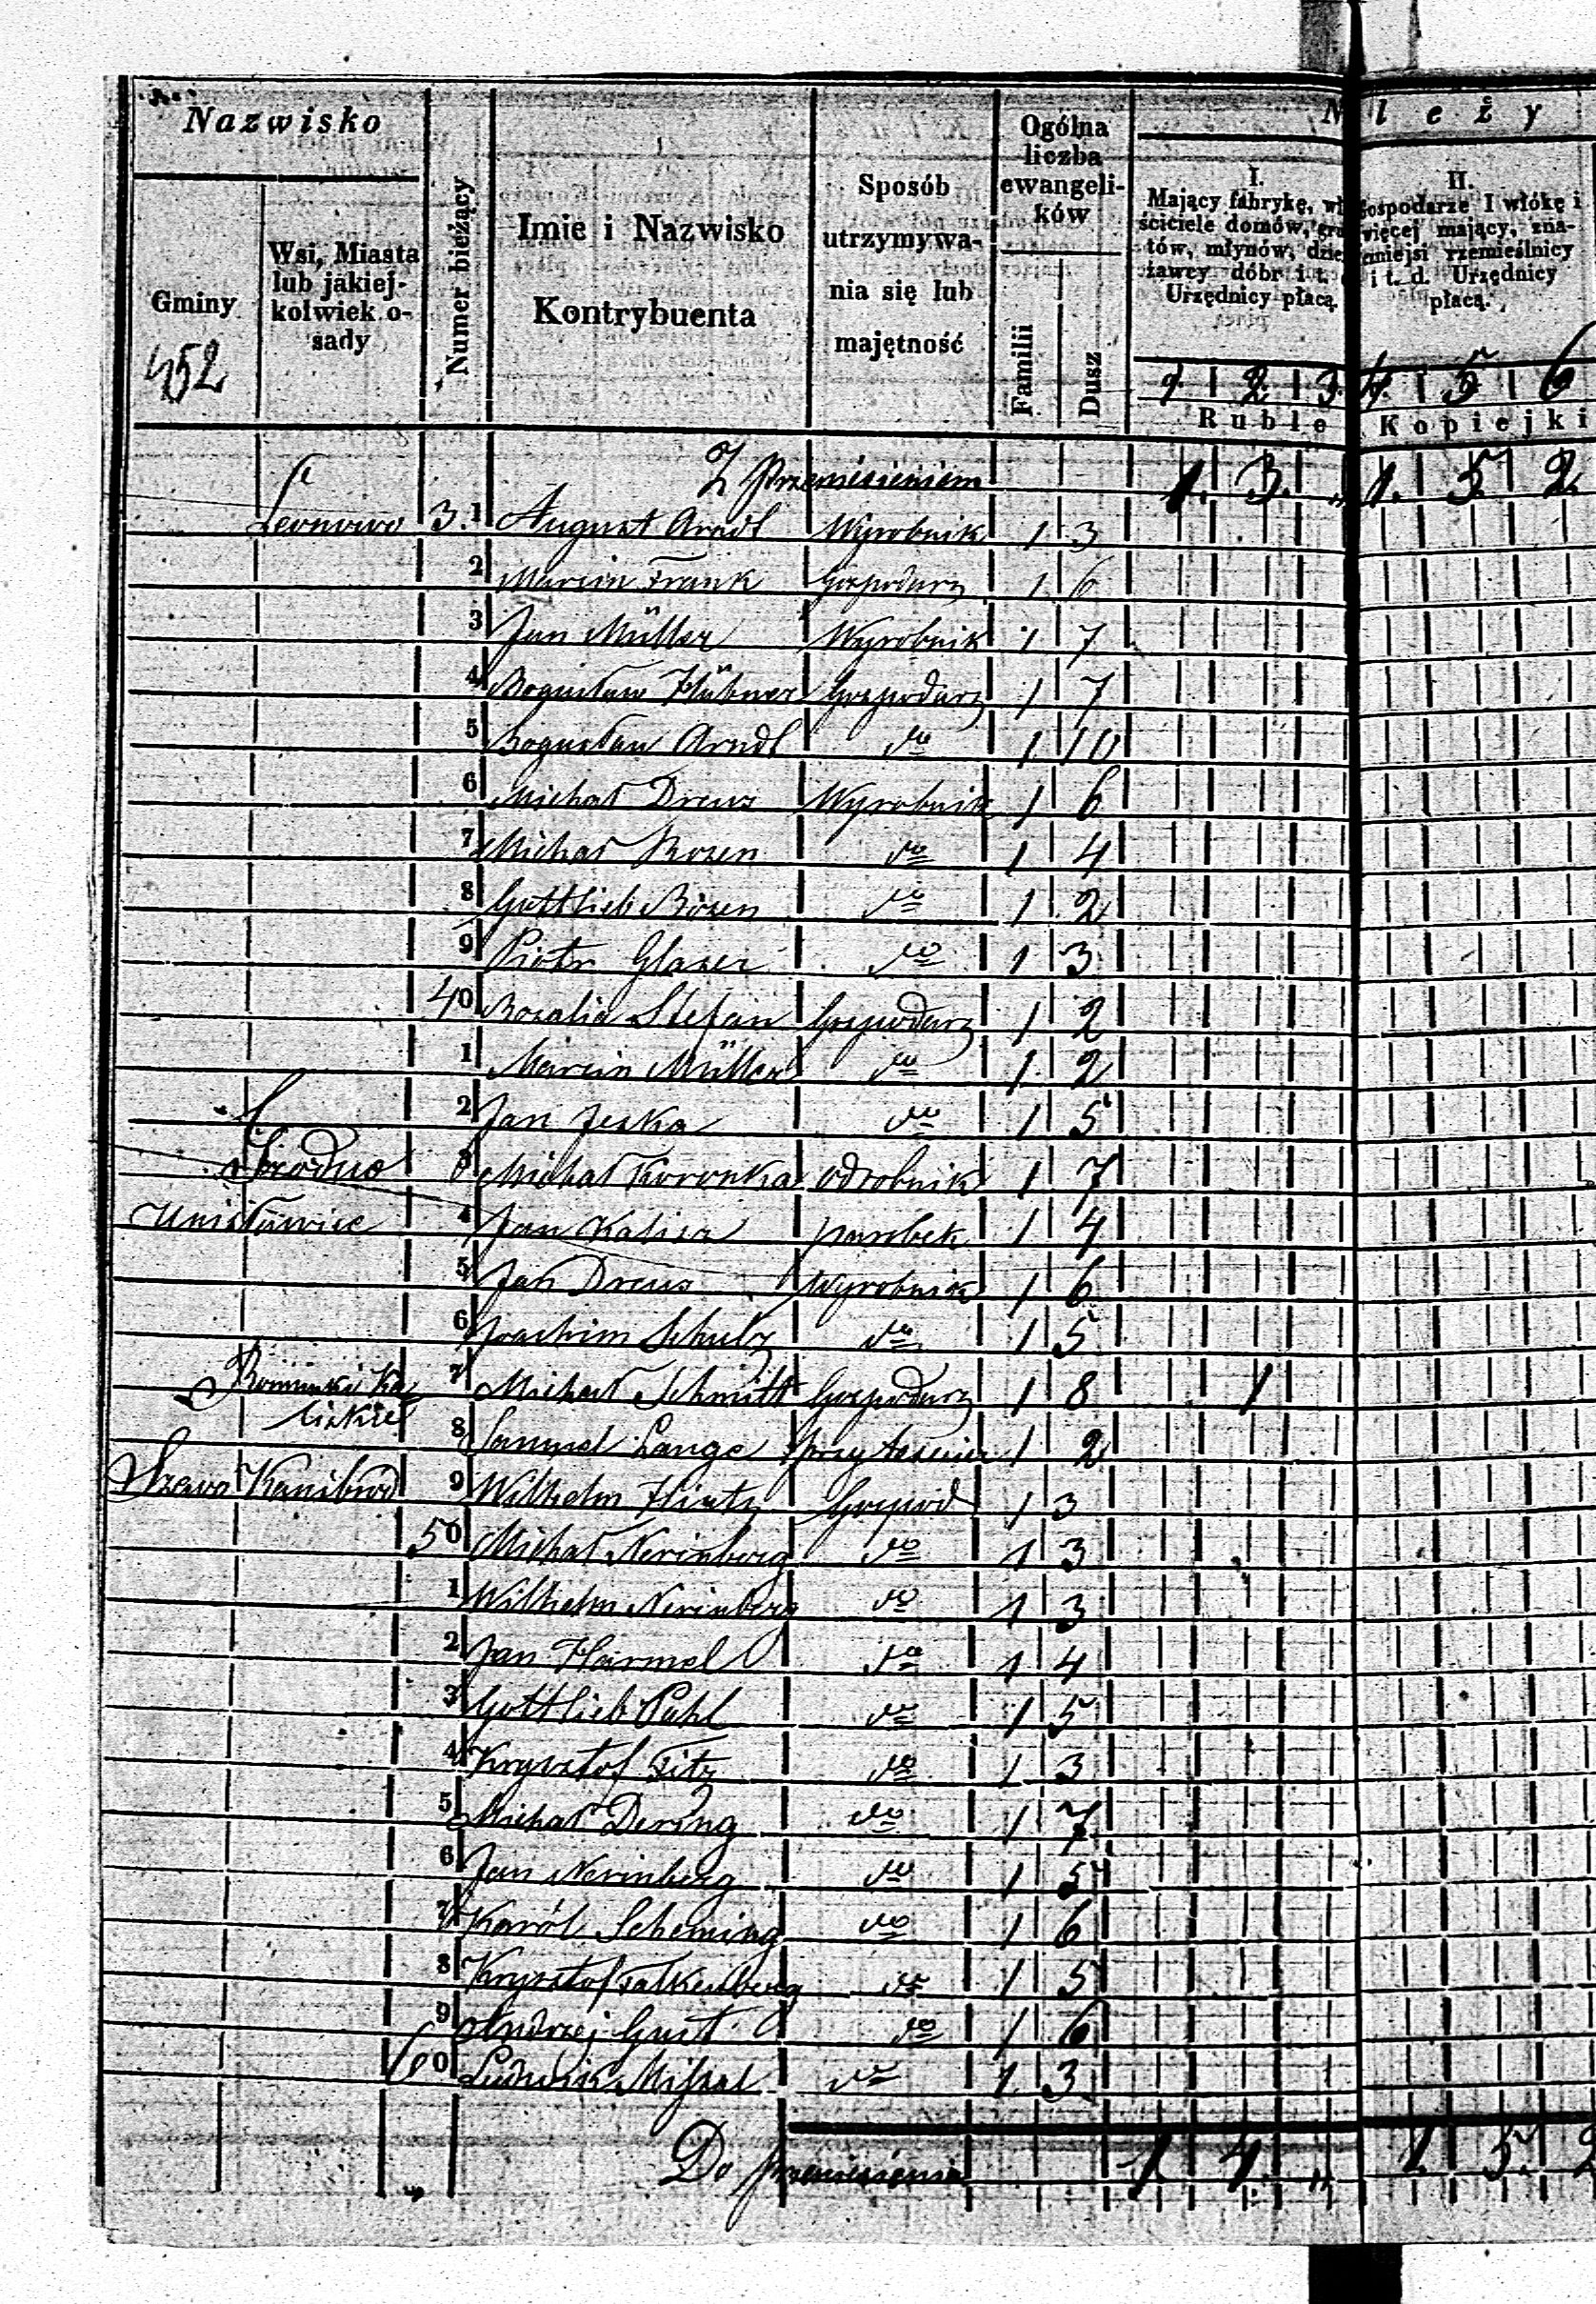 Nazwisko
Gminy
Wsi, Miasta lub jakiej-kolwiek o-sady
Numer bieżący
Imie i Nazwisko Kontrybuenta
Sposób utrzymywa-nia się lub majętność
Ogólna liczba ewangeli-ków
Familii
Dusz
N l e ż y
I. Mający fabrykę, ściciele domów, tów, młynów, żawcy dóbr i t. Urzędnicy płacą.
II. Gospodarze I włókę i więcej mający, zna-czniejsi rzemieślnicy i t. d. Urzędnicy płacą.
452
1. 2. 3. 4. 5 6
Ruble Kopiejki
Z przeniesieniem 1. 3. „ 1. 5. 2.
Leonowo 3.1 August Arndt Wyrobnik 1 3
2 Marcin Frank Gospodarz 1 6
3 Jan Müller Wyrobnik 1 7
4 Bogusław Hübner Gospodarz 1 7
5 Bogusław Arndt do 1 10
6 Michał Drews Wyrobnik 1 6
7 Michał Rosen do 1 4
8 Gottlieb Rosen do 1 2
9 Piotr Glaser do 1 3
40 Rozalia Stefan Gospodarz 1 2
1 Marcin Müller do 1 2
2 Jan Jeska do 1 5
3 Michał Koronka odrobnik 1 7
4 Jan Kalisz parobek 1 4
5 Jan Drews Wyrobnik 1 6
6 Joachim Schulz do 1 5
7 Michał Schmitt Gospodarz 1 8 1
8 Samuel Lange przy 1 2
Kanibród 9 Wilhelm Hintz Gospod 1 3
50 Michał Nerinberg do 1 3
1 Wilhelm Nerinberg do 1 3
2 Jan Harmel do 1 4
3 Gottlieb Puhl do 1 5
4 Krysztof Fitz do 1 3
5 Michał Dering do 1 7
6 Jan Nerinberg do 1 5
7 Karól Scheming do 1 6
8 Krysztof Falkenberg do 1 5
9 Andrzej Gust do 1 6
60 Ludwik Missal do 1 3
Do przeniesienia 1 4. „ 1. 5. 2